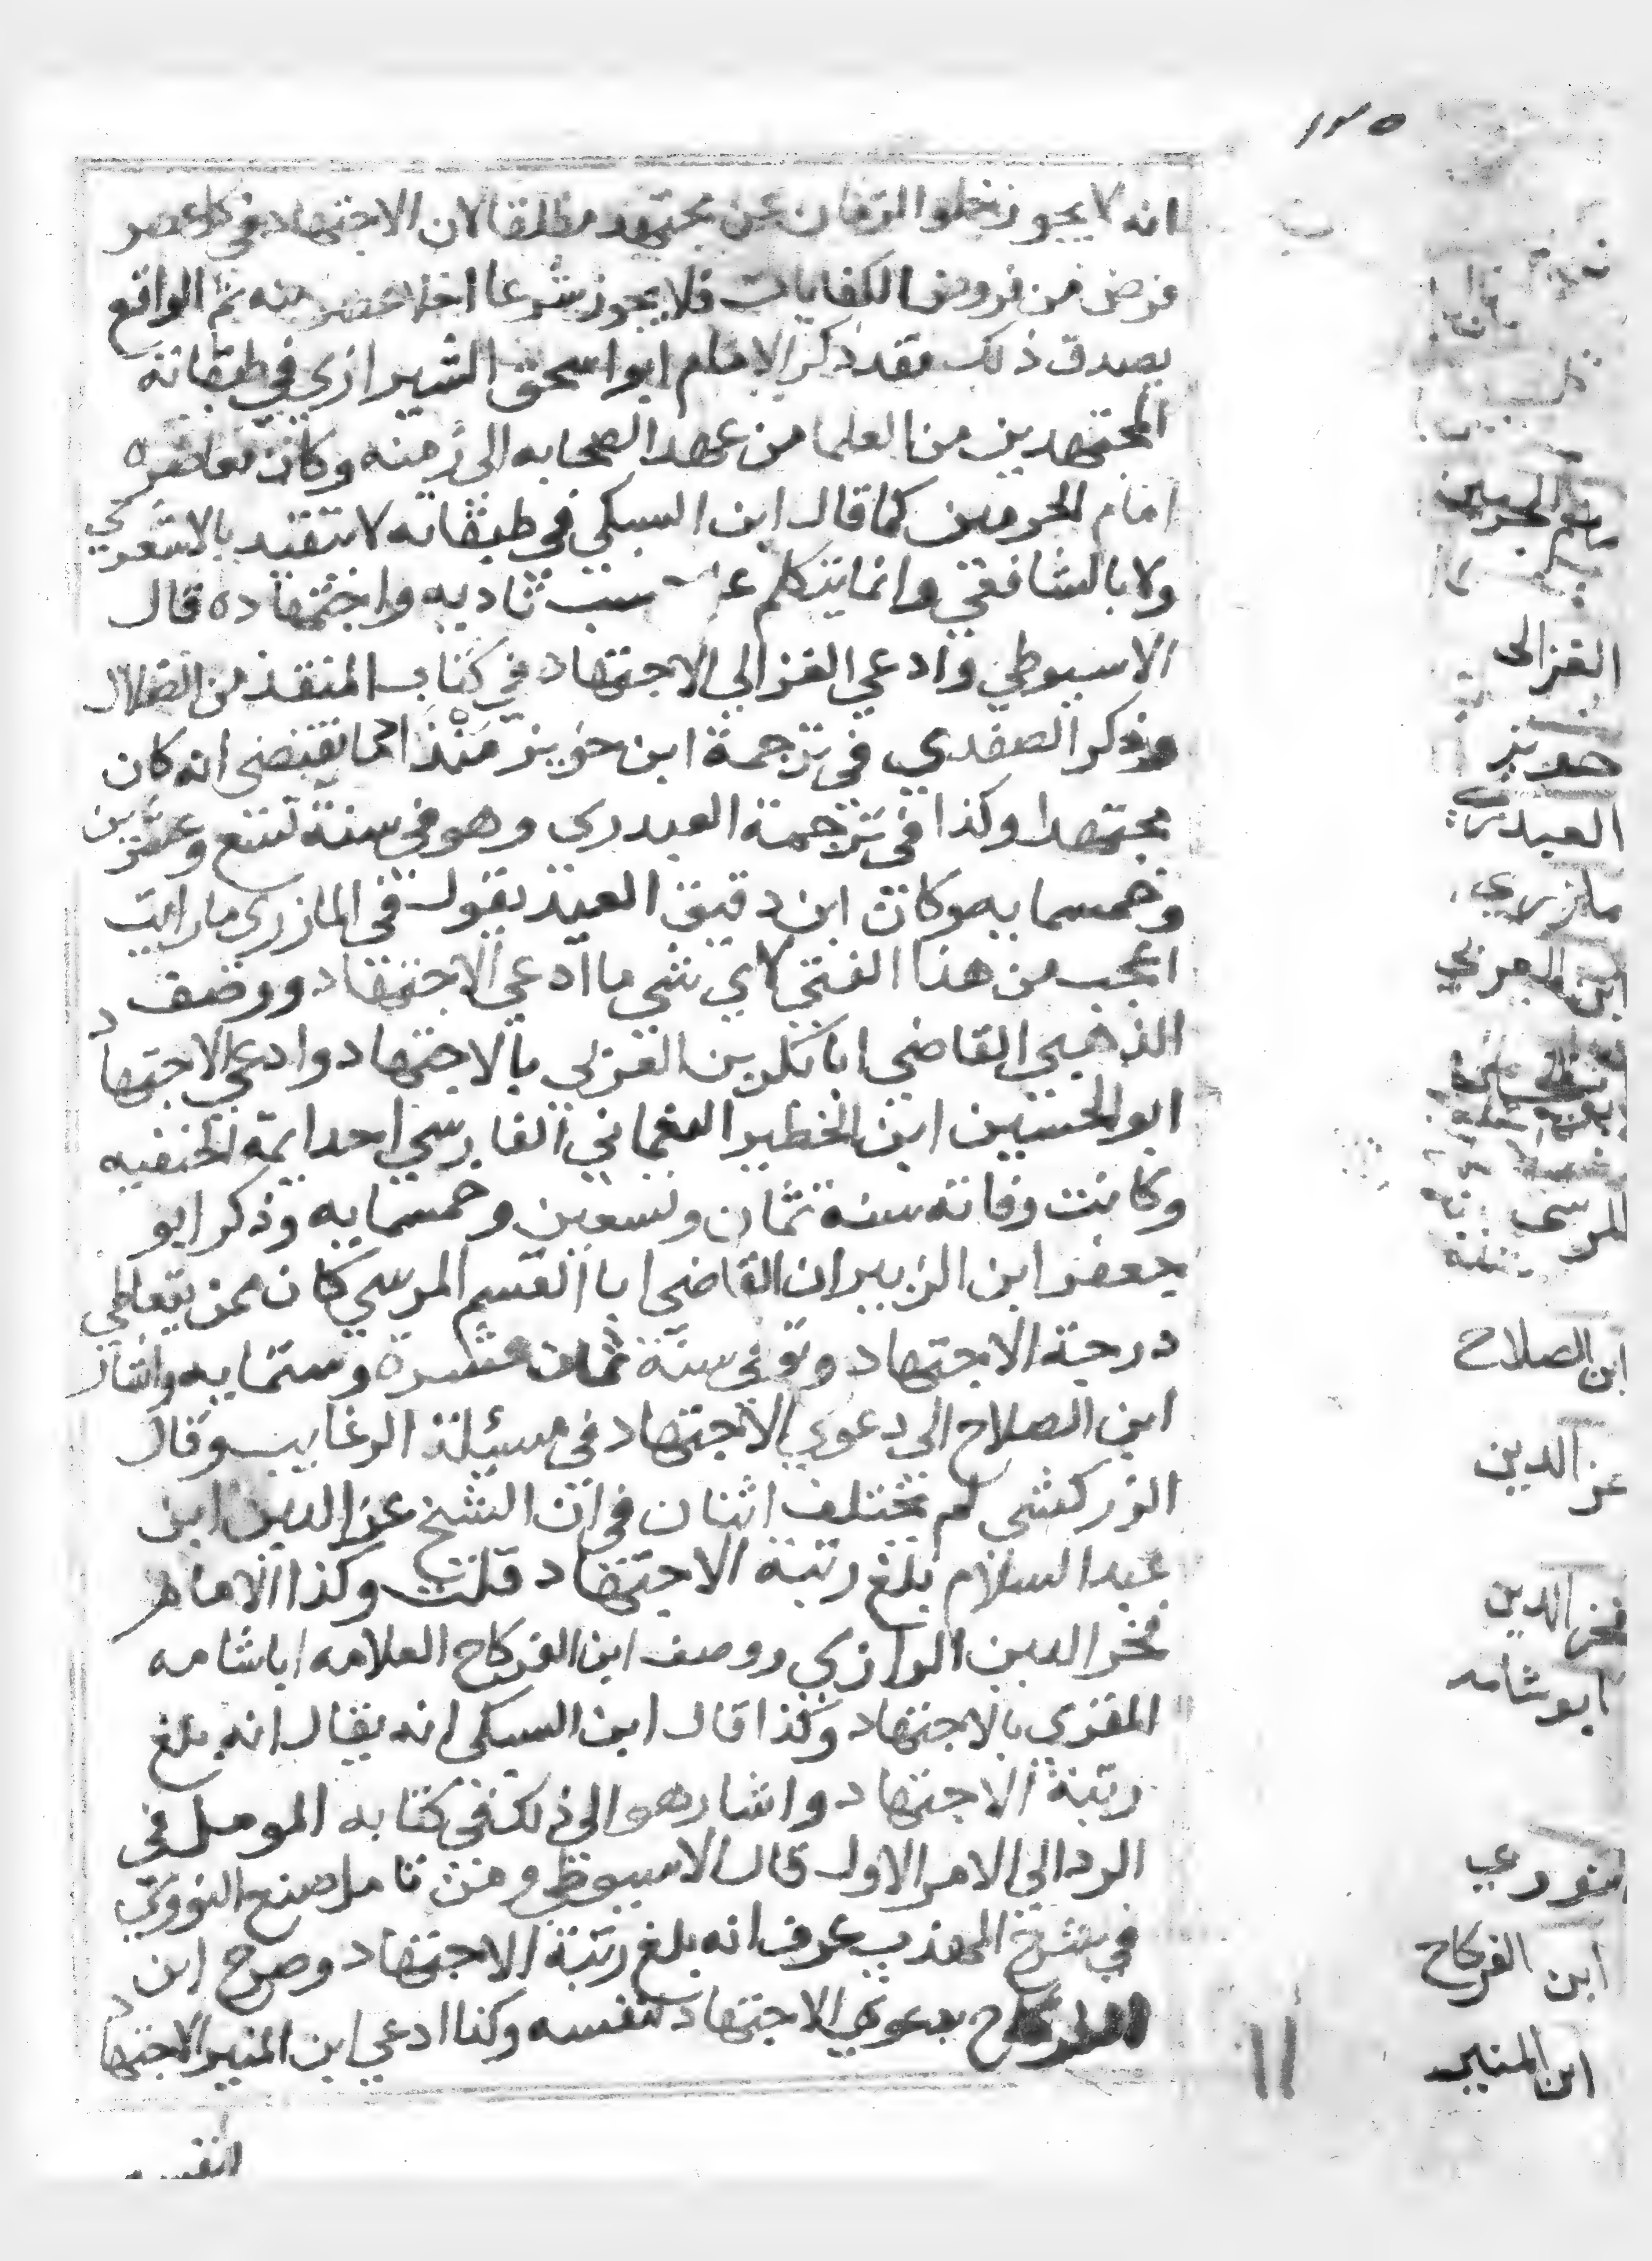 ١٣٥
انه لا يجوز نخلوا الزمان عن مجتهد مطلقا لان الاجتهاد في كل عصر
فرض من فروض الكفايات فلا يجوز شرعا اخلا عصر منه ثم الواقع
يصدق ذلك فقد ذكر الامام ابو اسحق الشيرازي في طبقاته
المجتهدين من العلما من عهد الصحابه الى زمنه وكان معاصره
امام الحرمين كما قال ابن السبكي في طبقاته لا يتقيد بالاشعري
ولا بالشافعي وانما يتكلم على حسب تاديه واجتهاده قال
الاسيوطي وادعي الغزالي الاجتهاد في كتاب المنقذ من الضلال
وذكر الصفدي في ترجمة ابن خويز منذاد ما يقتضي انه كان
مجتهدا وكذا في ترجمة العبدري وهو في سنة تسع وعشرين
وخمسمايه وكان ابن دقيق العيد يقول في المازري ما رايت
اعجب من هذا الفتى لاي شي ما ادعي الاجتهاد ووصف
الذهبي القاضي ابا بكر بن العربي بالاجتهاد وادعي الاجتهاد
ابو الحسين ابن الخطير النعماني الفارسي احد ايمة الحنفيه
وكانت وفاته سنه ثمان وتسعين وخمسمايه وذكر ابو
جعفر ابن الزبير ان القاضي ابا القسم المرسي كان ممن يتعاطي
درجة الاجتهاد وتوفي سنة ثمان عشرة وستمايه واشار
ابن الصلاح الى دعوي الاجتهاد في مسئلة الرغايب وقال
الزركشي لم يختلف اثنان في ان الشيخ عز الدين ابن
عبد السلام بلغ رتبة الاجتهاد قلت وكذا الامام
فخر الدين الرازي ووصف ابن الفركاح العلامه ابا شامه
المقري بالاجتهاد وكذا قال ابن السبكي انه يقال انه بلغ
رتبة الاجتهاد واشار هو الى ذلك في كتابه المومل في
الرد الى الامر الاول قال الاسيوطي ومن تامل صنع النووي
في شرح المهذب عرف انه بلغ رتبة الاجتهاد وصرح ابن
الفركاح بدعوي الاجتهاد لنفسه وكذا ادعي ابن المنير الاجتهاد
لنفسه
امام الحرمين
الغزالى
خويز
العبدري
مازري
ابن العربي
المرسى
ابن الصلاح
عز الدين
فخر الدين
ابو شامه
النووي
ابن الفركاح
ابن المنير